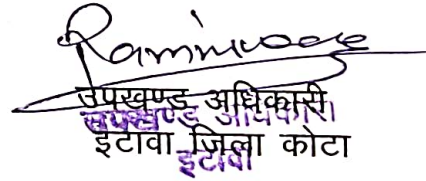 Ramniwas
उपखण्ड अधिकारी
उपखण्ड अधिकारी
इटावा जिला कोटा
इटावा